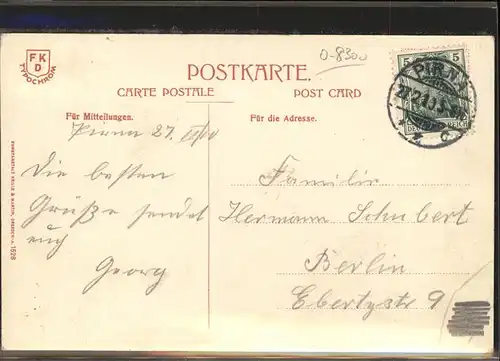 F K
D
TYPOCHROM
0-8300
POSTKARTE.
CARTE POSTALE
POST CARD
5 5
PIRNA
DEUTSCHES REICH
Für Mitteilungen.
Für die Adresse.
Pirna 27.
Die besten
Grüße sendet
euch
Georg
Familie
Hermann Schubert
Berlin
Ebertystr 9
1928